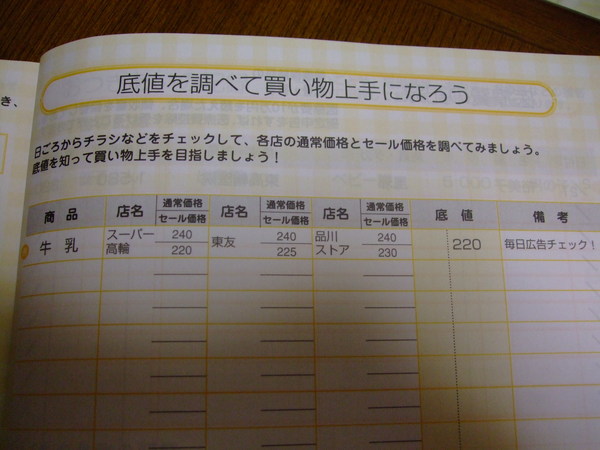 き、
底値を調べて買い物上手になろう
日ごろからチラシなどをチェックして、各店の通常価格とセール価格を調べてみましょう。
底値を知って買い物上手を目指しましょう！
商品 店名 通常価格 セール価格 店名 通常価格 セール価格 店名 通常価格 セール価格 底値 備考
牛乳 スーパー高輪 240 220 東友 240 225 品川ストア 240 230 220 毎日広告チェック！